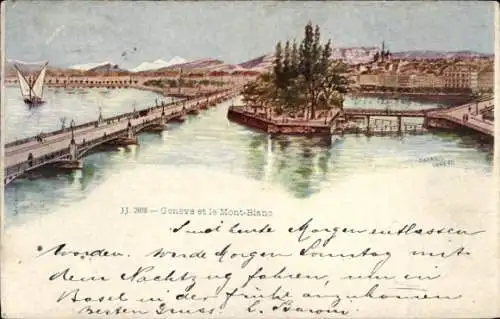 JJ. 2818 — Genève et le Mont-Blanc
Sind heute Morgen entlassen
worden. werde Morgen Sonntag mit
dem Nachtzug fahren, um in
Basel in der frühe anzukommen
Besten Gruss.